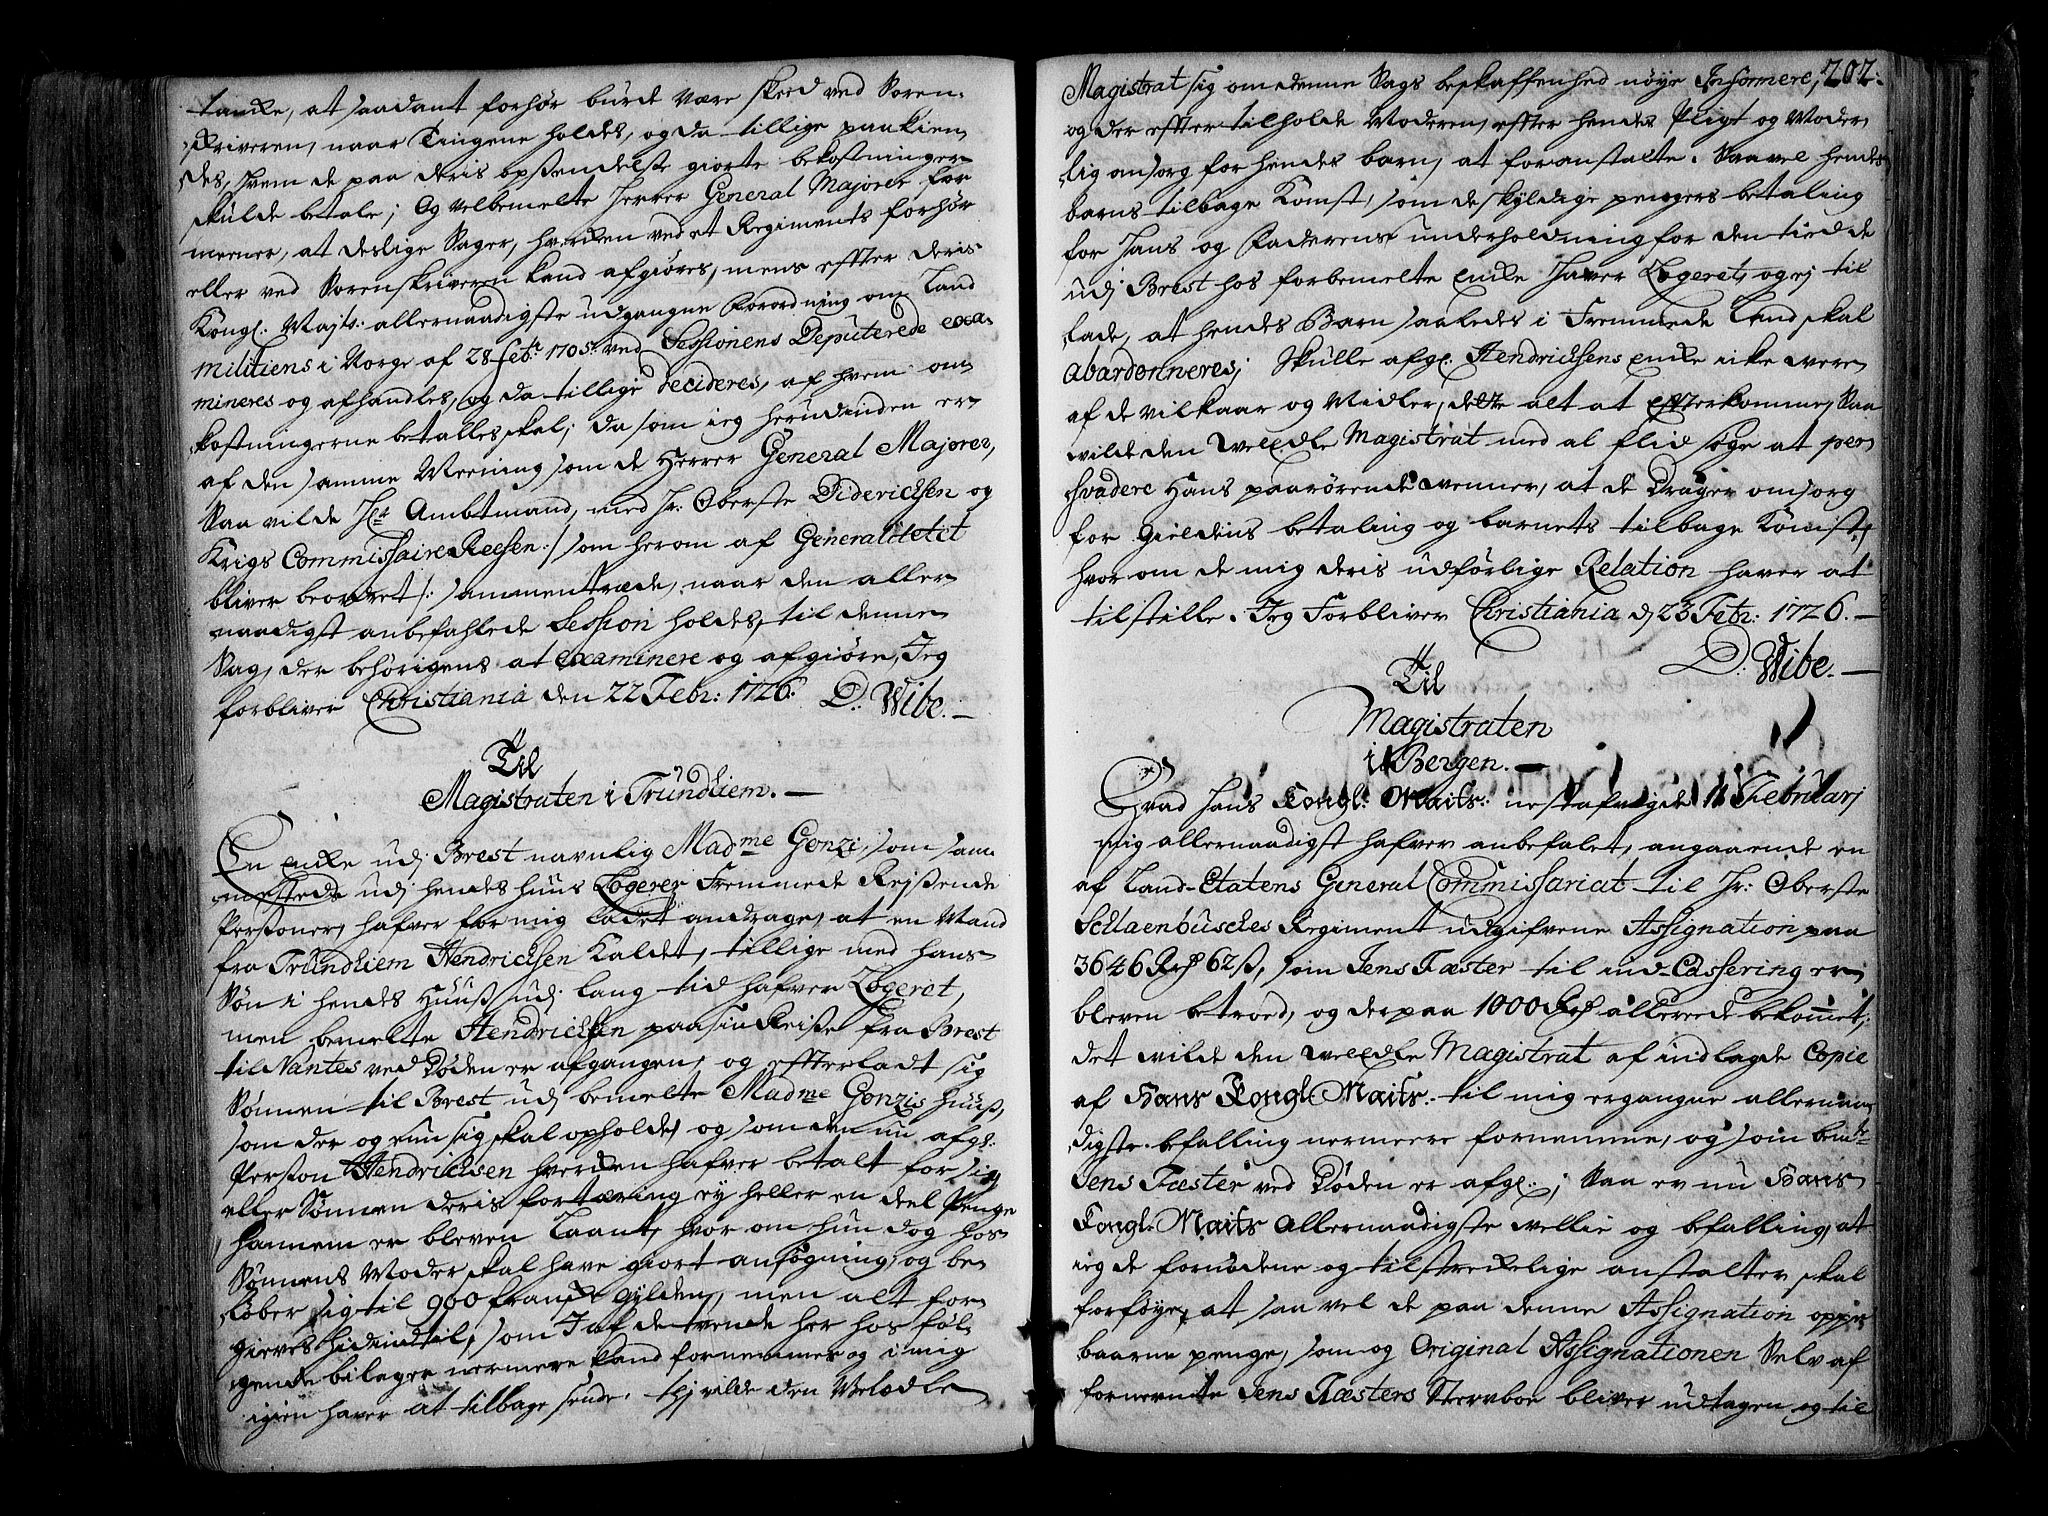 tanke, at saadant forhør burde være skeed ved Soren-
skriveren, naar Tingene holdes, og da tillige paakien-
des, hvem de paa deris opsendelse giorte bekostninger
skulde betale; Og velbemelte Herrer General Majorer for
meener, at deslige Sager, hverken ved et Regiments forhør
eller ved Sorenskriveren kand afgiøres, mens efter deris
Kongl: Majts: allernaadigste udgangne Forordning om Land
militiens i Norge af 28 Feb: 1705 ved Sessionens Deputerede exa-
mineres og afhandles, og da tillige decideres, af hvem om-
kostningerne betalles skal; da som ieg herudinden er
af den samme Meening som de Herrer General Majorer,
Saa vilde Hr Ambtmand, med Hr: Oberste Diderichsen og
Krigs Commissaire Reesen :/ som herom af Generalitetet
bliver beordret /: sammentræde, naar den aller-
naadigst anbefahlede Session holdes, til denne
Sag, der behørigens at examinere og afgiøre, Jeg
forbliver Christiania den 22 Febr: 1726. D. Wibe.
Til
Magistraten i Trundhiem.
En Enke udj Brest navnlig Madme Gonzi, som sam-
mestede udj hendes huus Logerer Fremmede Rejsende
Personer, hafver for mig ladet andrage, at en Mand
fra Trundhiem Hendrichsen kaldet, tillige med hans
Søn i hendes Huus udj lang tid hafver Logeret,
men bemelte Hendrichsen paa sin Reise fra Brest
til Nantes ved Døden er afgangen, og efterladt sig
Sønnen til Brest udj bemelte Madme Gonzis huus,
som der og nu sig skal opholde, og som den nu afgl:
Person Hendrichsen hverken hafver betalt for sig
eller Sønnen deris fortæring ey heller en deel Penge
hannem er bleven Laant, hvor om hun dog hos
Sønnens Moder skal have giort ansøgning, og be-
løber sig til 900 fransk gylden, men alt for-
gieves hidindtil, som I af de tvende her hos føl-
gende bilager nermere kand fornemme, og i mig
igien haver at tilbage sende. Thj vilde den Velædle
Magistrat sig om denne Sags beskaffenhed nøye Informere, 202.
og der efter tilholde Moderen, efter hendes Pligt og Moder-
lig omsorg for hendes barn, at foranstalte. Saavel hendes
barns tilbage Komst, som de skyldige pengers betaling
for hans og Faderens underholdning for den tied de
udj Brest hos forbemelte Enke haver Logeret, og ej til
lade, at hendes Barn saaledes i Fremmede Land skal
abandonneres; Skulle afg: Hendrichsens Enke icke være
af de vilkaar og Midler, dette alt at efterkomme, Saa
vilde den Velædle Magistrat med al flid søge at per-
svadere Hans paarørende Venner, at de drager omsorg
for gieldens betaling og barnets tilbage Komst,
hvor om de mig deris udførlige Relation haver at
tilstille. Jeg Forbliver Christiania d 23 Febr: 1726.
D. Wibe.
Til
Magistraten
i Bergen.
Hvad Hans Kongl: Maits: nestafvigte 11 Februarij
mig allernaadigst hafver anbefalet, angaaende en
af Land-Etatens General Commissariat til Hr: Oberste
Schaenbusches Regiment udgifvene Assignation paa
3646 Rd 62 ß, som Jens Fæster til ind-Cassering er
bleven betroed, og der paa 1000 Rd allerede bekommet;
det vilde den Velædle Magistrat af indlagde Copie
af Hans Kongl: Maits: til mig ergangne allernaa-
digste befalling nermere fornemme, og som bemte
Jens Fæster ved Døden er afg:; Saa er nu Hans
Kongl: Maits allernaadigste vellie og befalling, at
ieg de fornødene og tilstrekkelige anstalter skal
forføye, at saa vel de paa denne Assignation oppe-
baarne penge, som og Original Assignationen Selv af
fornevnte Jens Fæsters Stervboe bliver udtagen og til